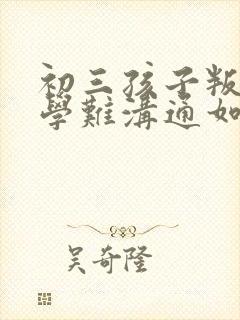 初三孩子叛
學難溝通如
吴奇隆